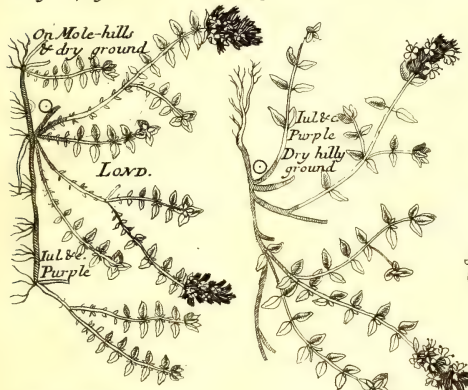 On Mole-hills
& dry ground
LOND.
Iul.&c.
Purple
Iul.&c.
Purple
Dry hilly
ground